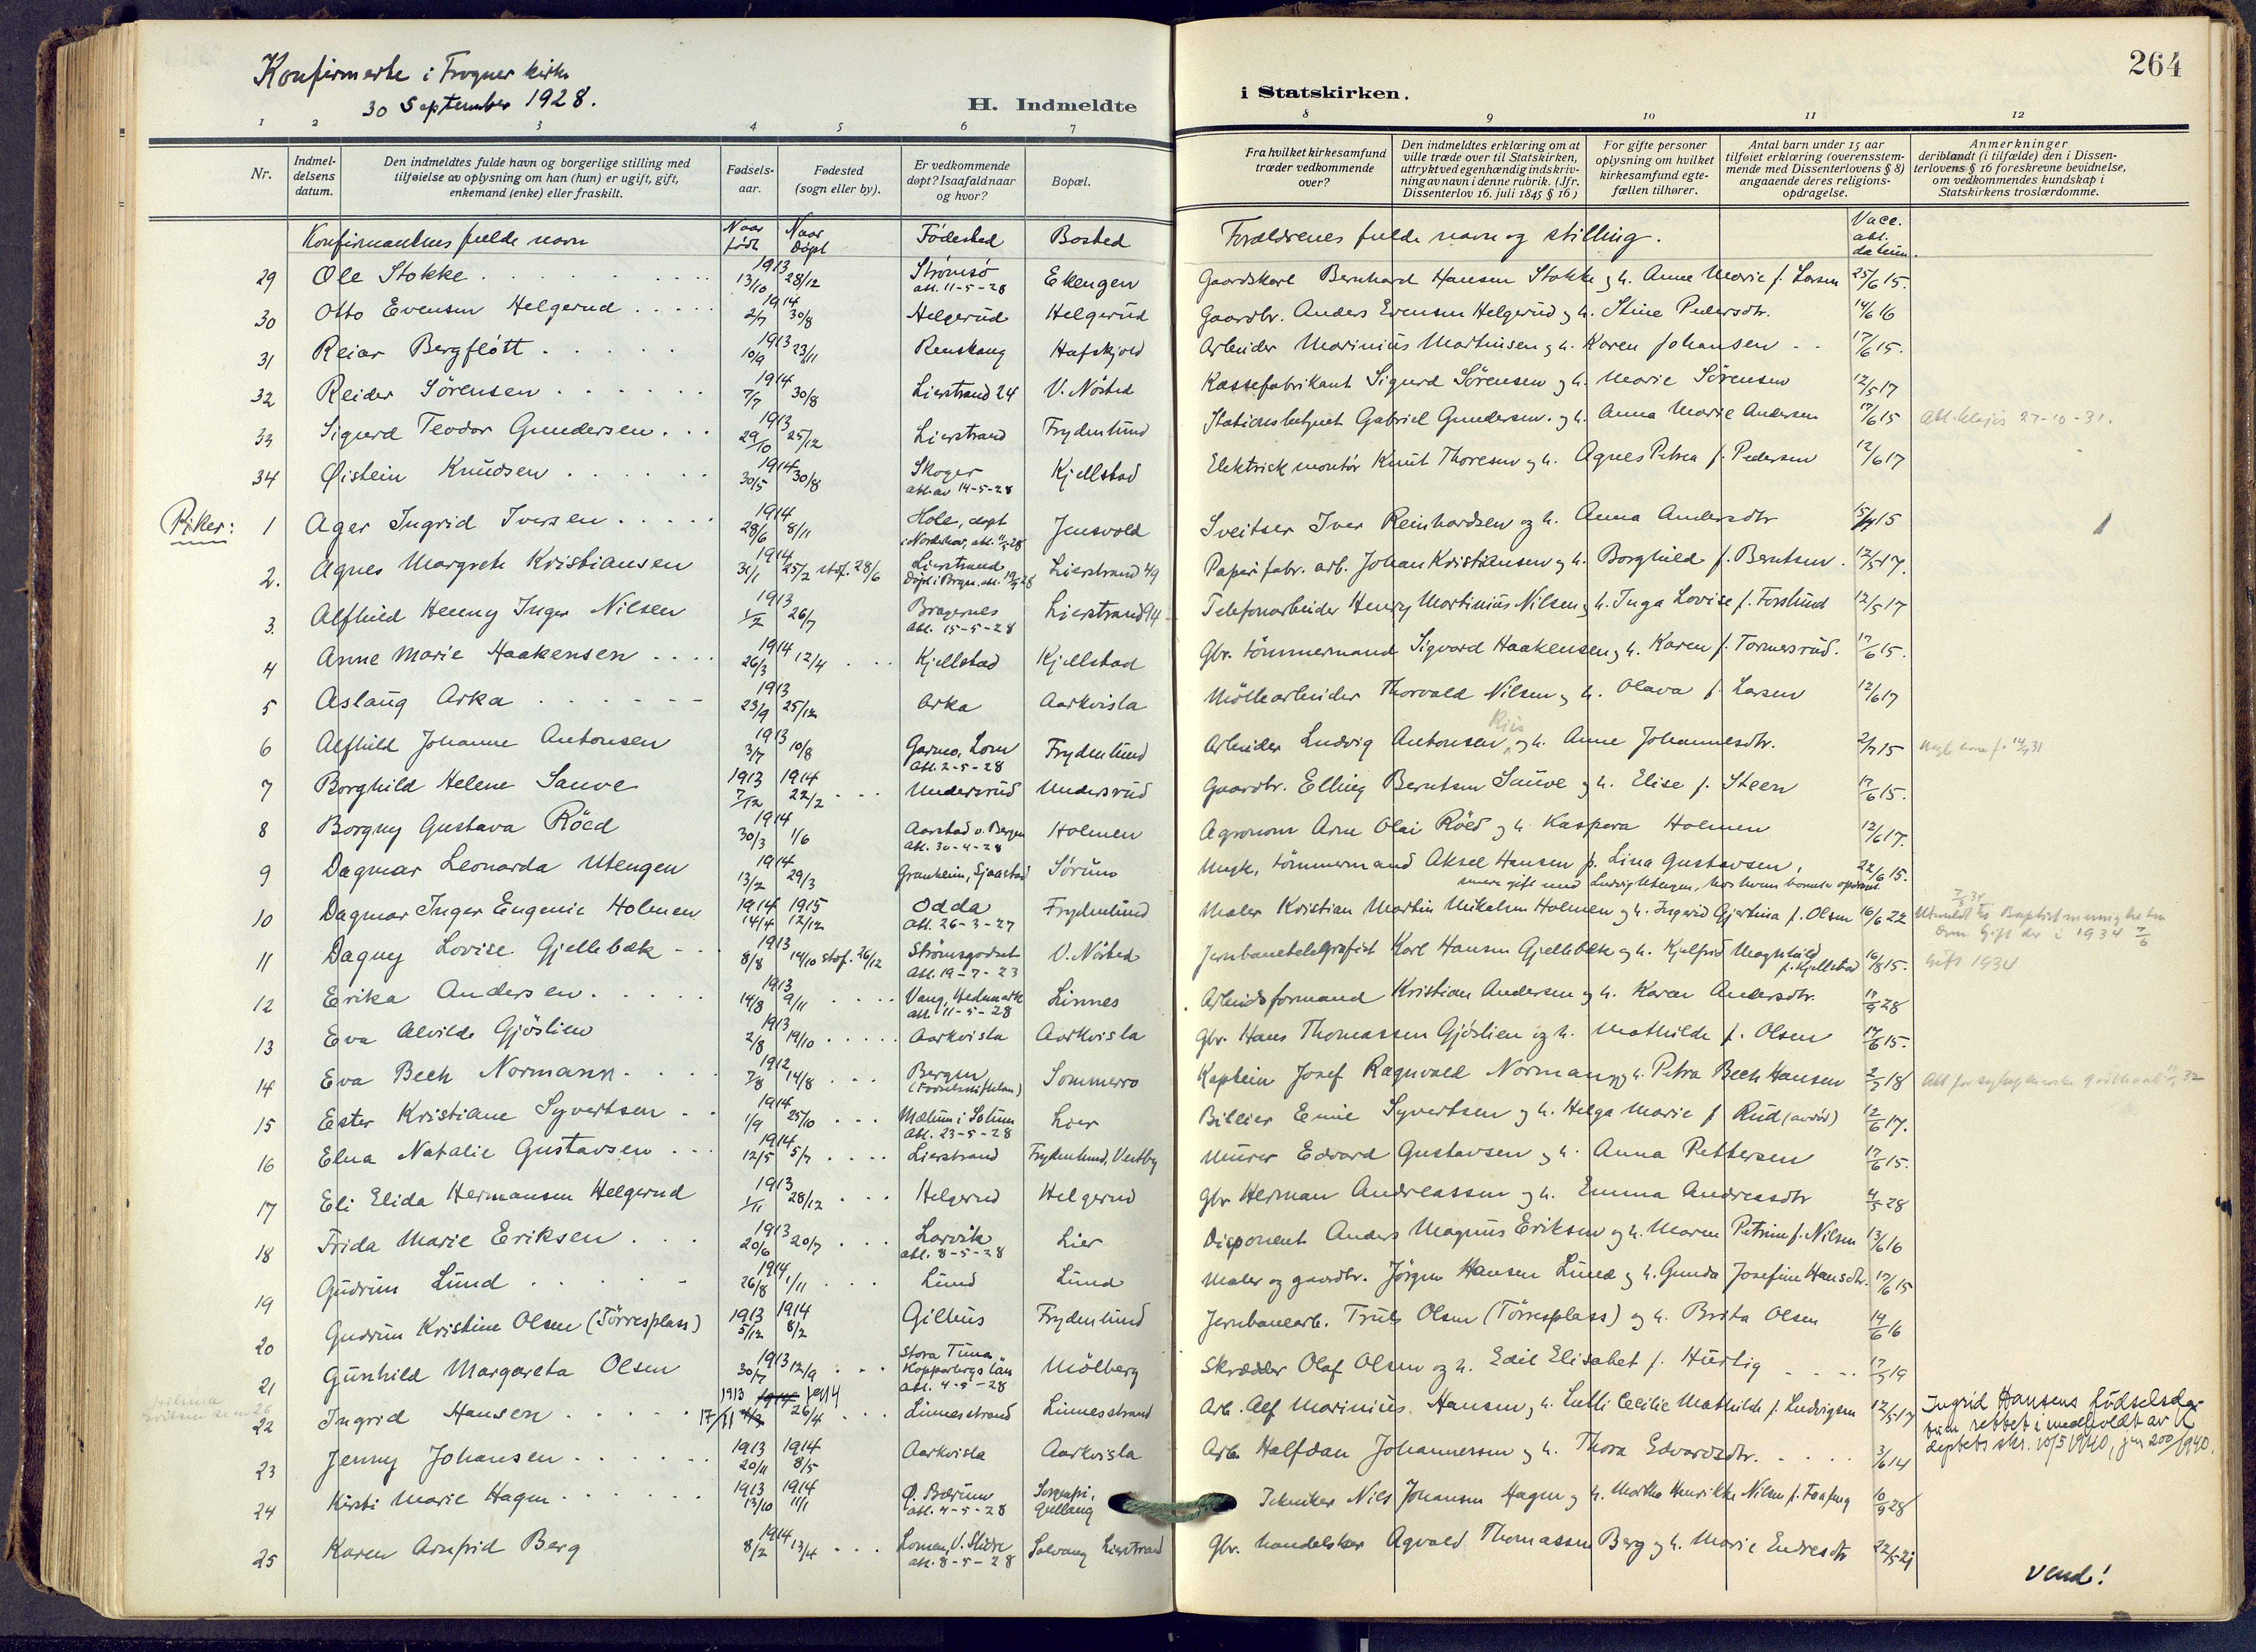 264
Konfirmerte i Frogner kirke
30 September 1928.
H. Indmeldte
i Statskirken.
1 2 3 4 5 6 7 8 9 10 11 12
Nr.
Indmel-
delsens
datum.
Den indmeldtes fulde navn og borgerlige stilling med
tilføielse av oplysning om han (hun) er ugift, gift,
enkemand (enke) eller fraskilt.
Fødsels-
aar.
Fødested
(sogn eller by).
Er vedkommende
døpt? Isaafald naar
og hvor?
Bopæl.
Fra hvilket kirkesamfund
træder vedkommende
over?
Den indmeldtes erklæring om at
ville træde over til Statskirken,
uttrykt ved egenhændig indskriv-
ning av navn i denne rubrik. (Jfr.
Dissenterlov 16. juli 1845 § 16)
For gifte personer
oplysning om hvilket
kirkesamfund egte-
fællen tilhører.
Antal barn under 15 aar
tilføiet erklæring (overensstem-
mende med Dissenterlovens § 8)
angaaende deres religions-
opdragelse.
Anmerkninger
deriblandt (i tilfælde) den i Dissen-
terlovens § 16 foreskrevne bevidnelse,
om vedkommendes kundskap i
Statskirkens troslærdomme.
Konfirmantens fulde navn Naar født Naar døpt Fødested Bosted Forældrenes fulde navn og stilling. Vacc. att. datum.
29 Ole Stokke 1913 13/10 28/12 Strømsø att. 11-5-28 Ekengen Gaardskarl Bernhard Hansen Stokke og h. Anne Marie f. Larsen 25/6 15.
30 Otto Evensen Helgerud 1914 2/7 30/8 Helgerud Helgerud Gaardbr. Anders Evensen Helgerud og h. Stine Pedersdtr. 14/6 16
31 Reiar Bergflött 1913 10/9 23/11 Renskaug Hafskjold Arbeider Marinius Martinsen og h. Karen Johansen 17/6 15.
32 Reider Sörensen 1914 7/7 30/8 Lierstrand 24 V. Nøsted Kassefabrikant Sigurd Sörensen og h. Marie Sörensen 12/5 17
33 Sigurd Teodor Gundersen 1913 29/10 25/12 Lierstrand Frydenlund Stationsbetjent Gabriel Gundersen og h. Anna Marie Andersen 17/6 15 27-10-31.
34 Øistein Knudsen 1914 30/5 30/8 Skoger att. av 14-5-28 Kjellstad Elektrisk montör Knut Thoresen og h. Agnes Petrea f. Pedersen 12/6 17
Piker:
1 Ager Ingrid Iversen 1914 28/6 8/11 Hole, døpt i Norderhov, att. 11/5-28 Jensvold Sveitser Iver Reinhardsen og h. Anna Andersdtr 15
2. Agnes Margrete Kristiansen 1914 31/1 25/2 stof. 28/6 Lierstrand Lierstrand 49 Papirfabr. arb. Johan Kristiansen og h. Borghild f. Berntsen. 12/5 17.
3. Alfhild Henny Inger Nilsen 1913 1/2 26/7 Bragernes att. 15-5-28 Lierstrand 94 Telefonarbeider Henry Martinius Nilsen og h. Inga Lovise f. Forslund 12/5 17
4 Anne Marie Haakensen 1914 26/3 12/4 Kjellstad Kjellstad Gbr. tömmermand Sigvard Haakensen og h. Karen f. Tormersrud. 17/6 15.
5 Aslaug Arka 1913 23/9 25/12 Arka Aarkvisla Möllearbeider Thorvald Nilsen og h. Olava f. Larsen 12/6 17
6 Alfhild Johanne Antonsen 1913 3/7 10/8 Garmo, Lom att. 2-5-28 Frydenlund Arbeider Ludvig Antonsen og h. Anne Johannesdtr. 2/7 15
7 Borghild Helene Sauve 1913 7/12 1914 22/2 Undersrud Undersrud Gaardbr. Elling Berntsen Sauve og h. Elise f. Steen 17/6 15.
8 Borgny Gustava Röed 1914 30/3 1/6 Aarstad v. Bergen att. 30-4-28 Holmen Agronom Arne Olai Röed og h. Kaspara Holmen 12/6 17.
9 Dagmar Leonarda Utengen 1914 13/2 29/3 Granheim, Sjaastad Sørum Ungk. tömmermand Aksel Hansen p. Lina Gustavsen, 22/6 15.
senere gift med Ludvig Utengen, hos hvem barnet er opdrat
10 Dagmar Inger Eugenie Holmen 1914 14/4 1915 12/12 Odda att. 26-3-27 Frydenlund Maler Kristian Martin Mikalsen Holmen og h. Ingerid Gjertina f. Olsen 16/6 22
11 Dagny Lovise Gjellebæk 1913 8/8 19/10 stof. 26/12 Strömsgodset att. 19-7-23 V. Nøsted Jernbanetelegrafist Karl Hansen Gjellebæk og h. Kjelfrid Magnhild f. Kjellstad 16/8 15. Gift 1934
12 Erika Andersen 1913 14/8 9/11 Vang, Hedemark att. 11-5-28 Linnes Arbeidsformand Kristian Andersen og h. Karen Andersdtr. 17/9 28
13 Eva Alvilde Gjöslien 1913 2/8 19/10 Aarkvisla Aarkvisla Gbr. Hans Thomassen Gjöslien og h. Mathilde f. Olsen 17/6 15.
14 Eva Bech Normann 1912 7/8 14/8 Bergen (Fødselsstiftelsen) Sommerro Kaptein Josef Ragnvald Normann og h. Petra Bech Hansen 2/5 18
15 Ester Kristiane Syvertsen 1914 1/9 25/10 Mælum i Solum att. 23-5-28 Lier Billier Emil Syvertsen og h. Helga Marie f. Rud (avdød) 12/6 17.
16 Elna Natalie Gustavsen 1914 12/5 5/7 Lierstrand Frydenlund, Vestby Murer Edvard Gustavsen og h. Anna Pettersen 17/6 15.
17 Eli Elida Hermansen Helgerud 1913 1/11 28/12 Helgerud Helgerud Gbr. Herman Andreassen og h. Emma Andreasdtr 4/5 28
18 Frida Marie Eriksen 1913 20/6 20/7 Larvik att. 8-5-28 Lier Disponent Anders Magnus Eriksen og h. Maren Petrine f. Nilsen 13/6 16
19 Gudrun Lund 1914 26/8 1/11 Lund Lund Maler og gaardbr. Jörgen Hansen Lund og h. Gunda Josefine Hansdtr. 17/6 15
20 Gudrun Kristine Olsen (Törresplass) 1913 5/12 1914 8/2 Gilhus Frydenlund Jernbanearb. Truls Olsen (Törresplass) og h. Brita Olsen 14/6 16
21 Gunhild Margareta Olsen 1913 30/7 12/9 Stora Tuna, Kopparbergs län att. 4-5-28 Mölberg Skrædder Olaf Olsen og h. Edil Elisabet f. Hurtig 17/5 19
22 Ingrid Hansen 1913 17/11 1914 26/4 Linnesstrand Linnesstrand Arb. Alf Marinius Hansen og h. Lulli Cecilie Mathilde f. Ludvigsen 12/5 17 Ingrid Hansens fødselsda-
tum rettet i medholdt av
deptets skr. 10/5 1940, jnr 200/1940.
23 Jenny Johansen 1913 20/11 1914 8/5 Aarkvisla Aarkvisla Arb. Halfdan Johannessen og h. Thora Edvardsdtr. 3/6 14
24 Kirsti Marie Hagen 1913 13/10 1914 11/1 Ø. Bærum att. 4-5-28 Gullaug Tekniker Nils Johansen Hagen og h. Martha Henrikke Nilsen 10/9 28
25 Karen Arnfrid Berg 1914 8/2 13/4 Lomen, V. Slidre att. 8-5-28 Solvang Lierstrand Gbr. handelsbr. Agvald Thomassen Berg og h. Marie Endresdtr 22/5 21
Vend!